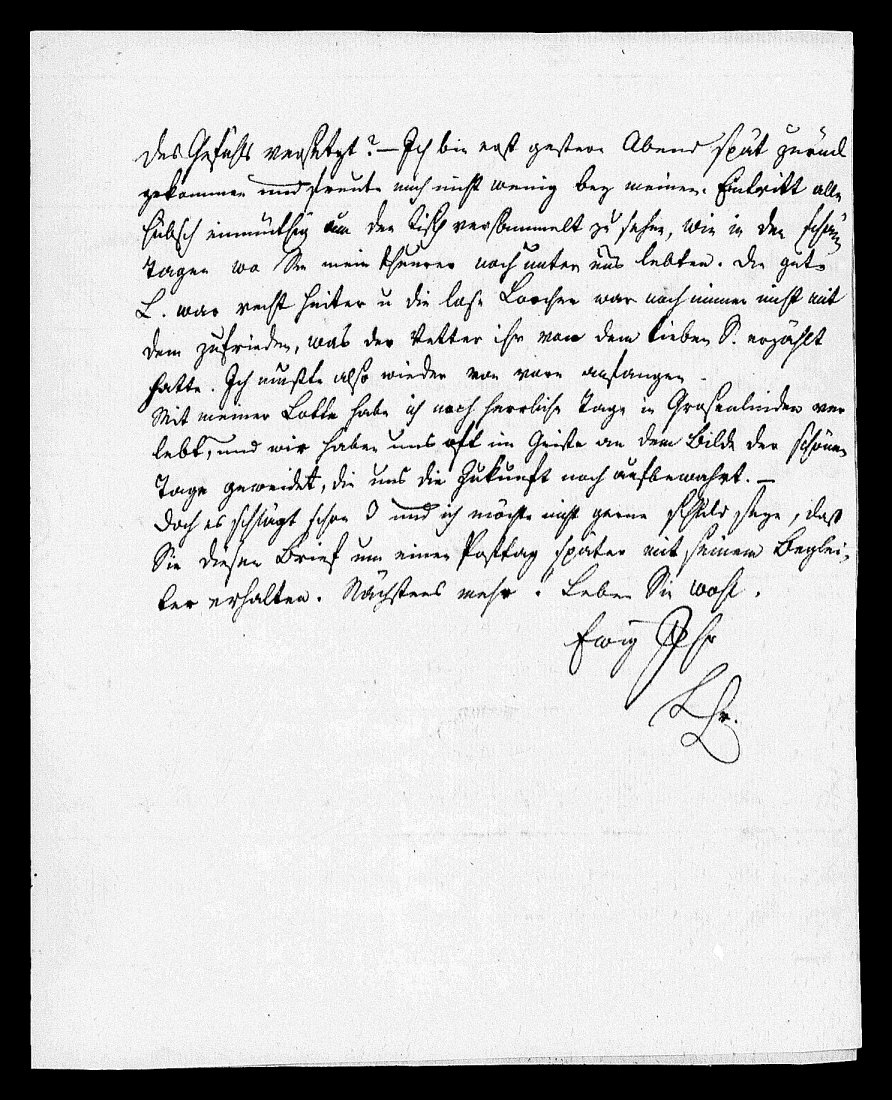 des Gefühls versetzt? – Ich bin erst gestern Abend spät zurück
gekommen und freute mich nicht wenig bey meinem Eintritt alle
hübsch einmüthig um den Tisch versammelt zu sehn, wie in den schönen
Tagen wo Sie mein theurer noch unter uns lebten. Die gute
L. war recht heiter u die lose Lorchen war noch immer nicht mit
dem zufrieden, was der Vetter ihr von dem lieben S. erzählt
hatte. Ich mußte also wieder von vorn anfangen.
Mit meiner Lotte habe ich noch herrliche Tage in Grosenlinden ver
lebt, und wir haben uns oft im Geiste an dem Bilde der schönen
Tage geweidet, die uns die Zukunft noch aufbewahrt. –
Doch es schlägt schon 3 und ich möchte nicht gerne schuld seyn, daß
Sie diesen Brief um einen Posttag später mit seinem Beglei-
ter erhalten. Nächstens mehr. Leben Sie wohl.
Ewig Ihr